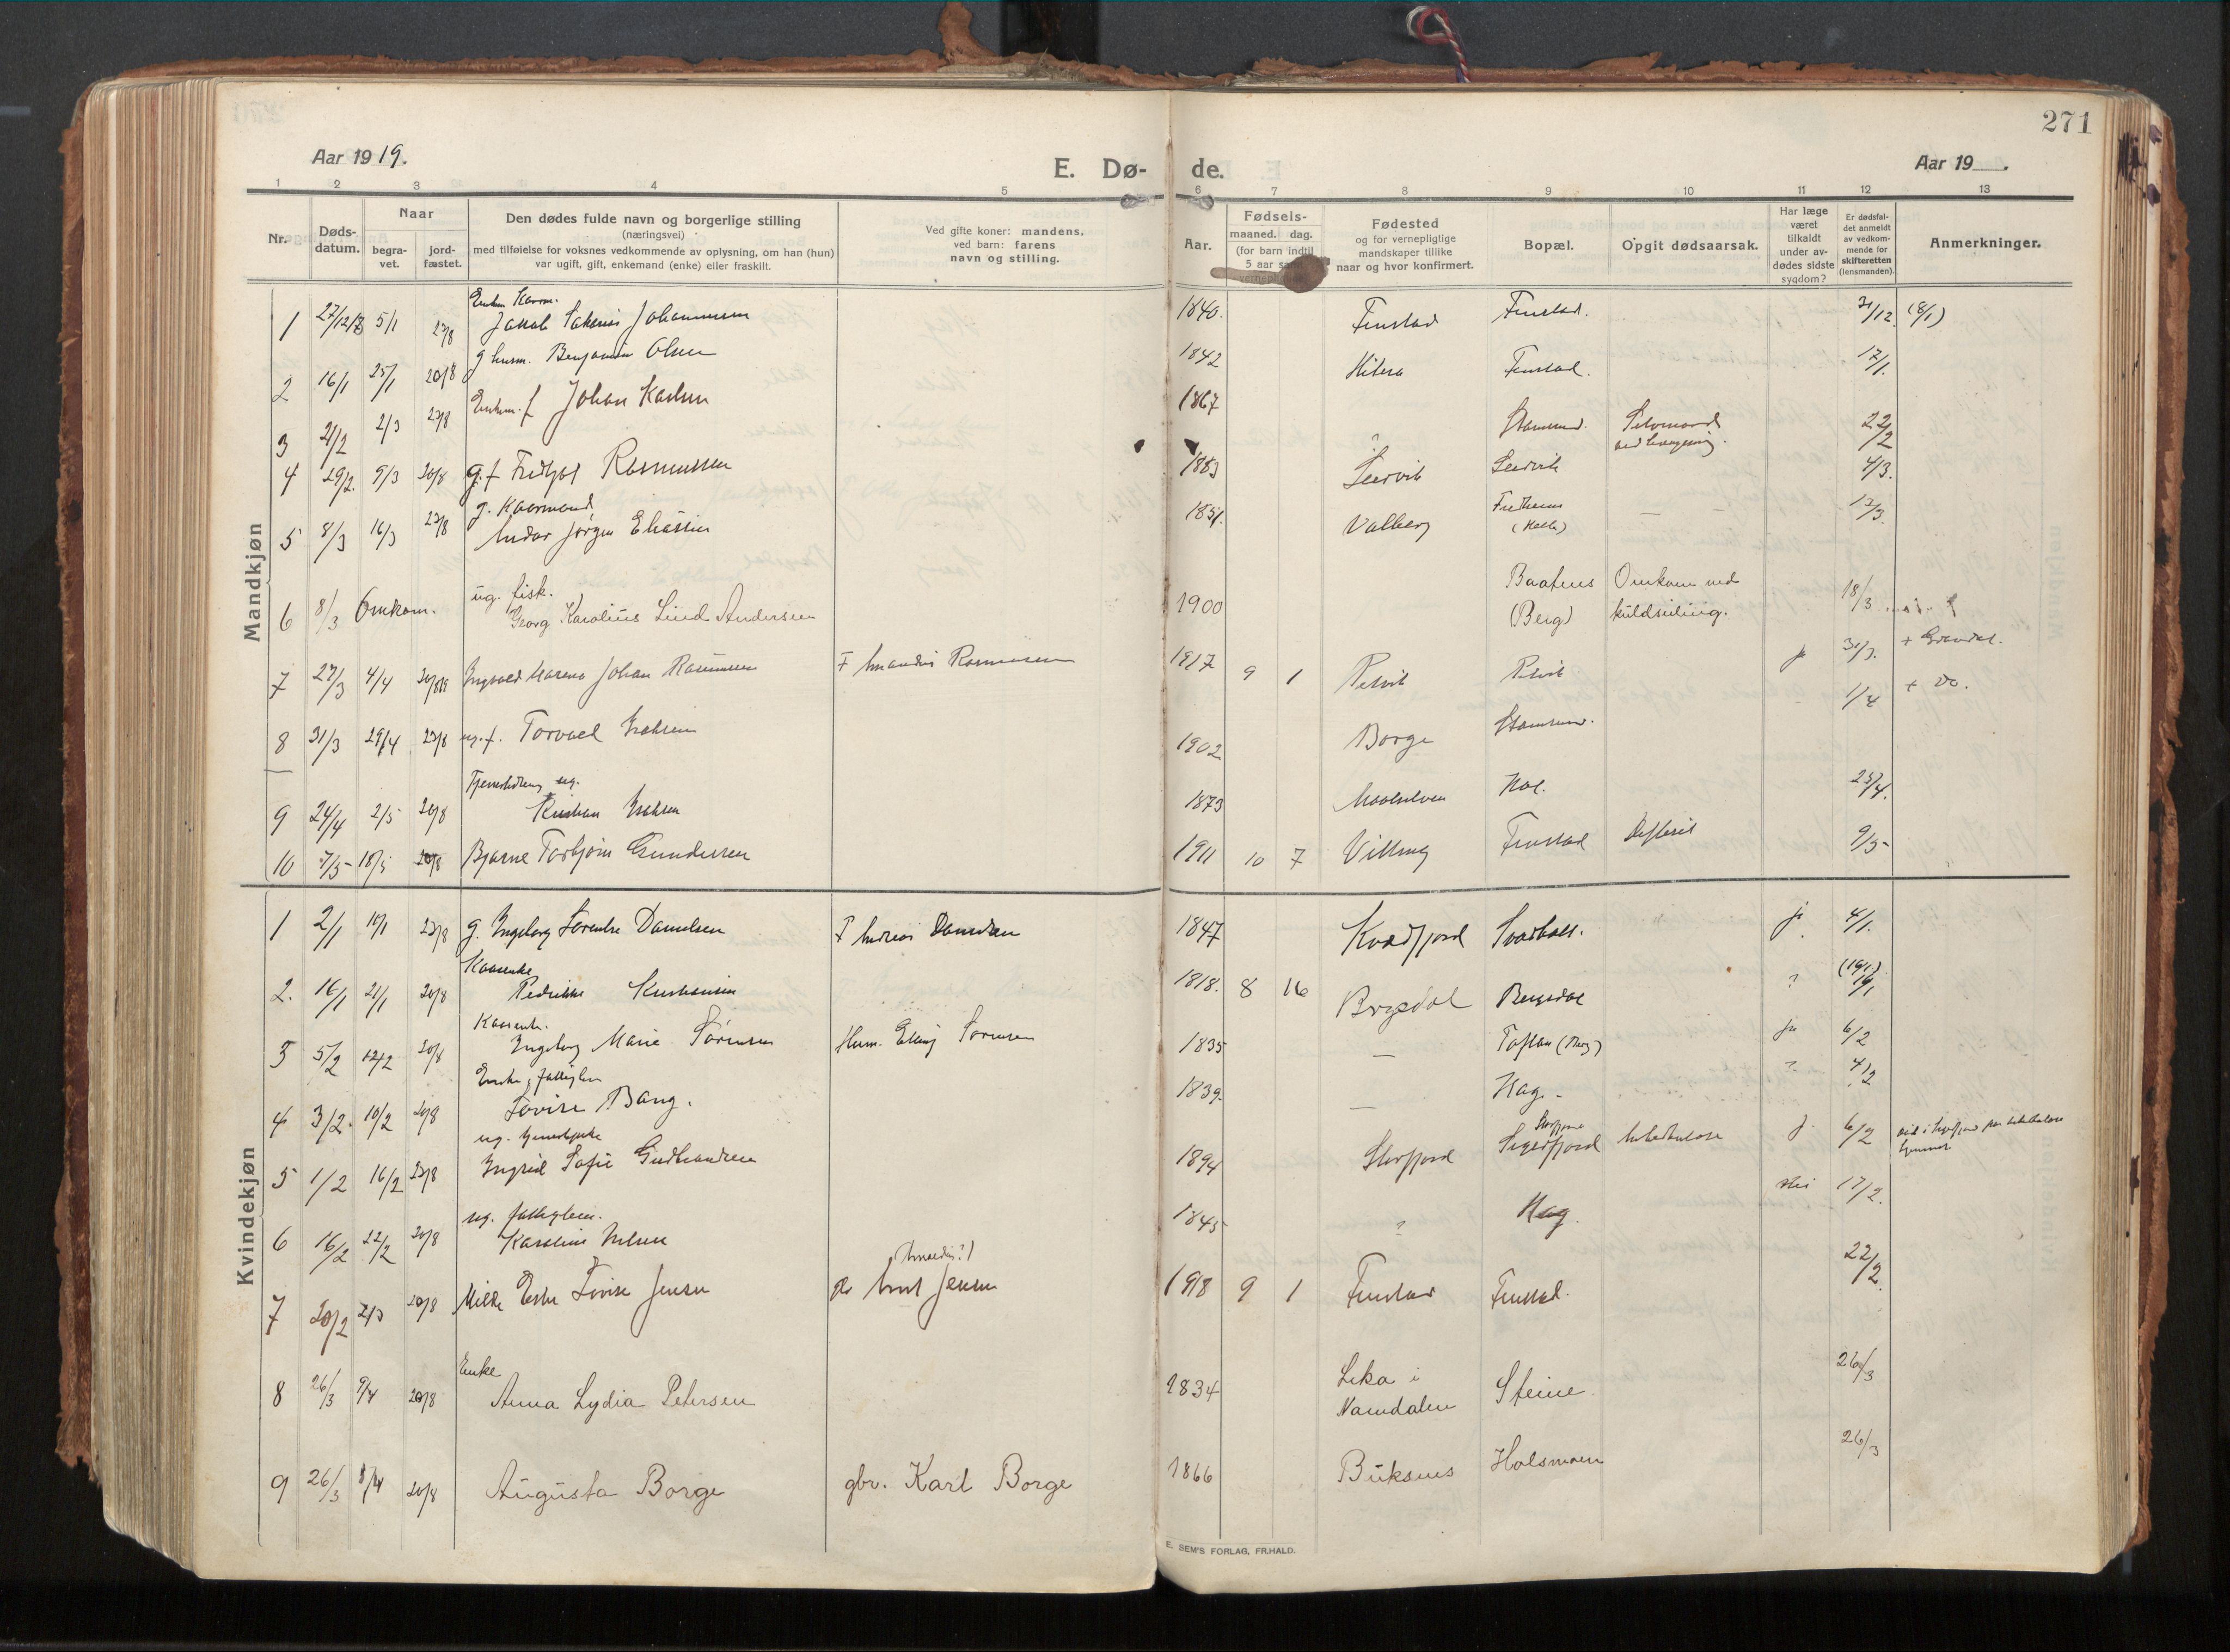 271
Aar 1919.
E. Dø-
de.
Aar 19 .
1 2 3 4 5 6 7 8 9 10 11 12 13
Nr.
Døds-
datum.
Naar
begra-
vet.
jord-
fæstet.
Den dødes fulde navn og borgerlige stilling
(næringsvei)
med tilføielse for voksnes vedkommende av oplysning, om han (hun)
var ugift, gift, enkemand (enke) eller fraskilt.
Ved gifte koner: mandens,
ved barn: farens
navn og stilling.
Aar.
Fødsels-
maaned. dag.
(for barn indtil
5 aar
Fødested
og for vernepligtige
mandskaper tillike
naar og hvor konfirmert.
Bopæl.
Opgit dødsaarsak.
Har læge
været
tilkaldt
under av-
dødes sidste
sygdom?
Er dødsfal-
det anmeldt
av vedkom-
mende for
skifteretten
(lensmanden).
Anmerkninger.
Mandkjøn
1 27/12 18 5/1 20/8 Jakob Johannessen 1840. Finstad Finstad. 31/12 (8/1)
2 16/1 25/1 20/8 g husm. Benjamin Olsen 1842 Hitera Finstad. 17/1
3 21/2 2/3 20/8 Enkem. f Johan Karlsen 1867 ? Stamsund. Selvmord
ved hængning.
22/2
4 29/2 9/3 20/8 g. f Fridtjof Rasmussen 1883 Leirvik Leirvik 4/3.
5 8/3 16/3 20/8 g. Kaarmand
Andor Jørgen Eliassen 1851. Valberg 13/3
6 8/3 Omkom. ug. fisk.
Georg Karolius Lind Andersen 1900 Baatnes
(Berg)
Omkom ved
kuldseiling.
18/3
7 27/3 4/4 20/8 19 Ingvald Johan Rasmussen F Rasmussen 1917 9 1 Petvik Petvik j 31/3.
8 31/3 29/4 20/8 ug. f. Torvael Isaksen 1902 Borge Stamsund. 1/4 + do.
9 24/4 2/5 20/8 Tjenestedreng ug.
Kristian Isaksen 1873 Maalselven Hol. 25/4.
10 7/5 18/5 20/8 Bjarne Torbjørn Gundersen 1911 10 7 Finstad Difterit 9/5
Kvindekjøn
1 2/1 10/1 20/8 g. Ingeborg Sørentse Danielsen F Andreas Danielsen 1847 Kvædfjord Svarholt. j. 4/1.
2. 16/1 21/1 20/8 Kaarenke
Pedrikke Kristensen 1818. 8 16 Bergsdal Bergsdal ? (19/1)
3 5/2 12/2 20/8 Kaarenk.
Ingeborg Marie Sørensen Husm. Elling Sørensen 1835 — Toftan (Berg) ja 6/2
4 3/2. 10/2 20/8 Enke, fattiglem
Lovise Bang. 1839. — Hag. ? 4/2
5 1/2 16/2 20/8 ug. tjenestepike
Ingrid Sofie Gudbrandsen 1894 Storfjord Storfjord
Sigerfjord
tuberkulose j. 6/2
hjemmet
6 16/2 22/2 20/8 ug. fattiglem.
Karoline Nilsen 1845 ? Hag. Nei 17/2.
7 20/2 2/3 20/8 Milda Ester Lovise Jensen Jensen 1918 9 1 Finstad Finstad. 22/2
8 26/3 9/4 20/8 Enke
Anna Lydia Petersen 1834 Leka i
Namdalen
Steine 26/3
9 26/3 8/4 20/8 Augusta Borge gbr. Karl Borge 1866 Buksnes Holsmoen 26/3
E. SEM'S FORLAG, FR.HALD.